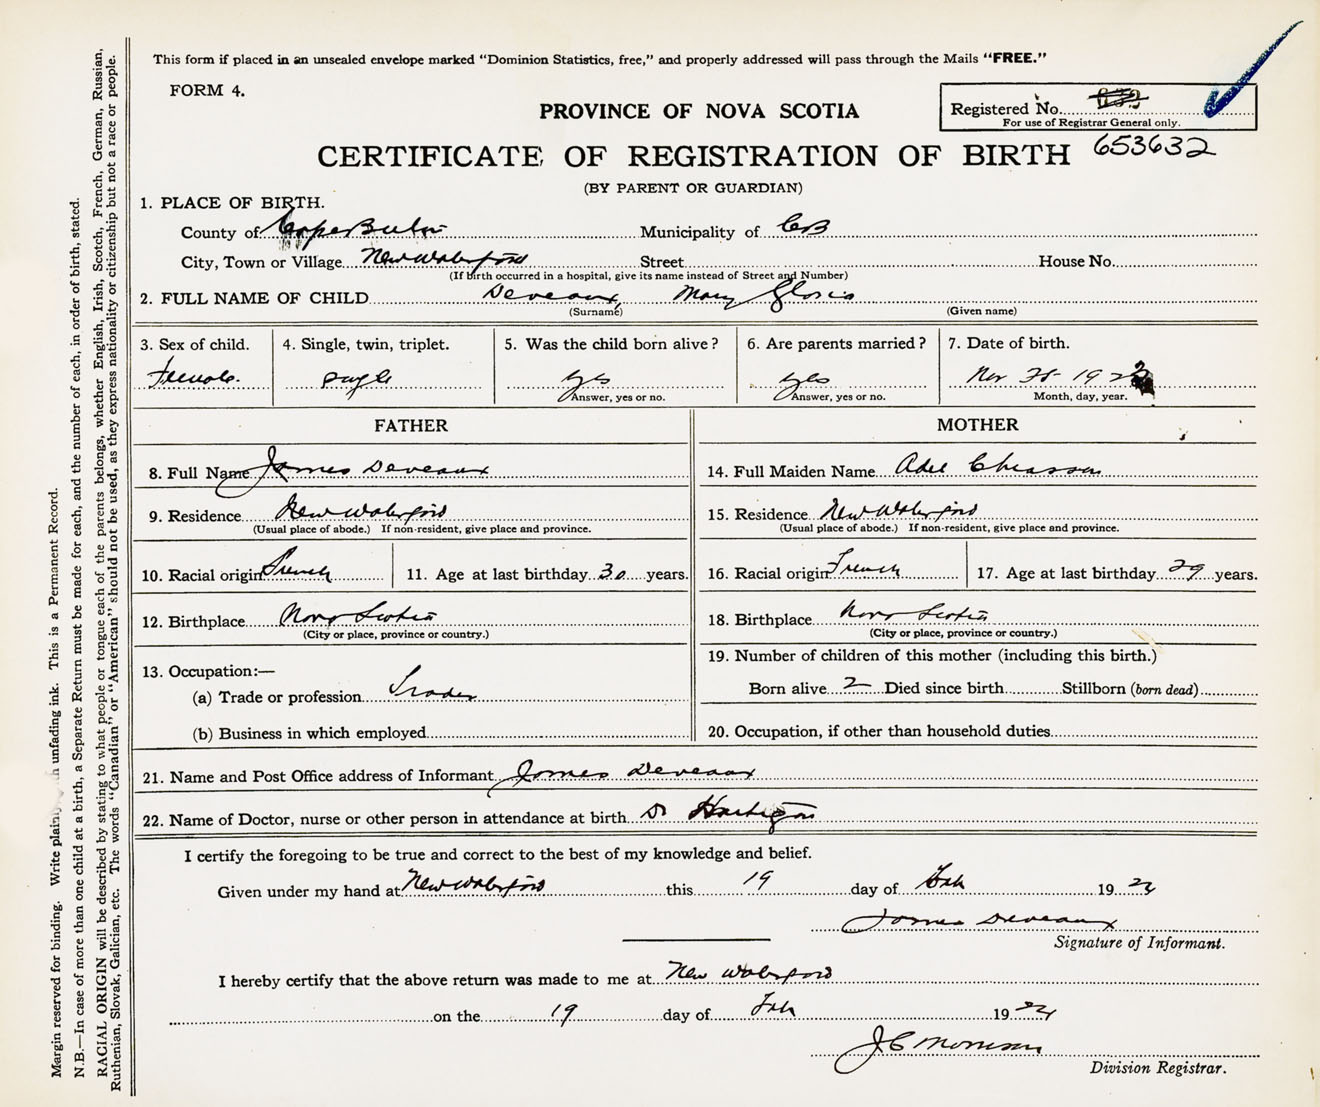 This form if placed in an unsealed envelope marked "Dominion Statistics, free," and properly addressed will pass through the Mails "FREE."
FORM 4.
PROVINCE OF NOVA SCOTIA
Registered No.
For use of Registrar General only.
653632
CERTIFICATE OF REGISTRATION OF BIRTH
(BY PARENT OR GUARDIAN)
1. PLACE OF BIRTH.
County of Cape Breton Municipality of CB
City, Town or Village New Waterford Street House No.
(If birth occurred in a hospital, give its name instead of Street and Number)
2. FULL NAME OF CHILD Deveaux, Mary Gloria
(Surname) (Given name)
3. Sex of child. 4. Single, twin, triplet. 5. Was the child born alive? 6. Are parents married? 7. Date of birth.
Female. single yes yes Nov 192
Answer, yes or no. Answer, yes or no. Month, day, year.
FATHER MOTHER
8. Full Name James Deveaux 14. Full Maiden Name Adel Chiasson
9. Residence New Waterford 15. Residence New Waterford
(Usual place of abode.) If non-resident, give place and province. (Usual place of abode.) If non-resident, give place and province.
10. Racial origin French 11. Age at last birthday 30 years. 16. Racial origin French 17. Age at last birthday 29 years.
12. Birthplace Nova Scotia 18. Birthplace Nova Scotia
(City or place, province or country.) (City or place, province or country.)
13. Occupation:— 19. Number of children of this mother (including this birth.)
(a) Trade or profession Trader Born alive 2 Died since birth Stillborn (born dead)
(b) Business in which employed 20. Occupation, if other than household duties
21. Name and Post Office address of Informant James Deveaux
22. Name of Doctor, nurse or other person in attendance at birth Dr Hartigan
I certify the foregoing to be true and correct to the best of my knowledge and belief.
Given under my hand at New Waterford this 19 day of Feb 1924
James Deveaux
Signature of Informant.
I hereby certify that the above return was made to me at New Waterford
on the 19 day of Feb 1924
J C Morrison
Division Registrar.
Margin reserved for binding. Write unfading ink. This is a Permanent Record.
N.B.—In case of more than one child at a birth, a Separate Return must be made for each, and the number of each, in order of birth, stated.
RACIAL ORIGIN will be described by stating to what people or tongue each of the parents belongs, whether English, Irish, Scotch, French, German, Russian,
Ruthenian, Slovak, Galician, etc. The words "Canadian" or "American" should not be used, as they express nationality or citizenship but not a race or people.